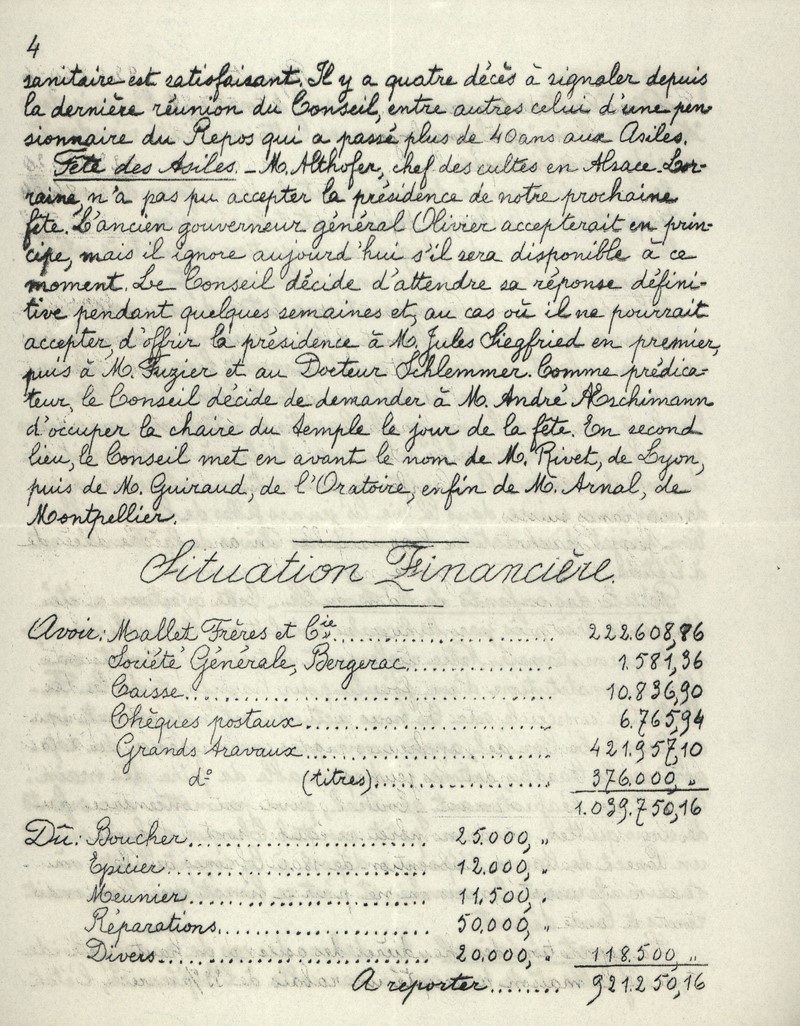 4
sanitaire est satisfaisant. Il y a quatre décès à signaler depuis
la dernière réunion du Conseil, entre autres celui d'une pen-
sionnaire du Repos qui a passé plus de 40 ans aux Asiles.
Fête des Asiles. _ M. Althofer, chef des cultes en Alsace-Lor-
raine, n'a pas pu accepter la présidence de notre prochaine
fête. L'ancien gouverneur général Olivier accepterait en prin-
cipe, mais il ignore aujourd'hui s'il sera disponible à ce
moment. Le Conseil décide d'attendre sa réponse défini-
tive pendant quelques semaines et, au cas où il ne pourrait
accepter, d'offrir la présidence à M. Jules Siegfried en premier,
puis à M. Fuzier et au Docteur Schlemmer. Comme prédica-
teur, le Conseil décide de demander à M. André Æschimann
d'occuper la chaire du temple le jour de la fête. En second
lieu, le Conseil met en avant le nom de M. Rivet, de Lyon,
puis de M. Guiraud, de l'Oratoire, enfin de M. Arnal, de
Montpellier.
Situation Financière.
Avoir: Mallet Frères et Cie. .................... 222.608,86
Société Générale, Bergerac .................... 1.581,36
Caisse .................... 10.836,90
Chèques postaux .................... 6.765,94
Grands travaux .................... 421.957,10
do (titres) .................... 376.000, "
1.039.750,16
Dû: Boucher .................... 25.000, "
Epicier .................... 12.000, "
Meunier .................... 11.500, "
Réparations .................... 50.000, "
Divers .................... 20.000, " 118.500, "
A reporter ........ 921.250,16